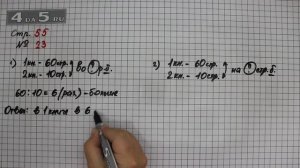 4DA5.RU
Стр. 55
№ 23
1) 1 кн. - 60 стр. } во ? р. б.
2 кн. - 10 стр.
60 : 10 = 6 (раз) - больше
Ответ: в 1 книге в 6
2) 1 кн. - 60 стр. } на ? стр. б.
2 кн. - 10 стр.